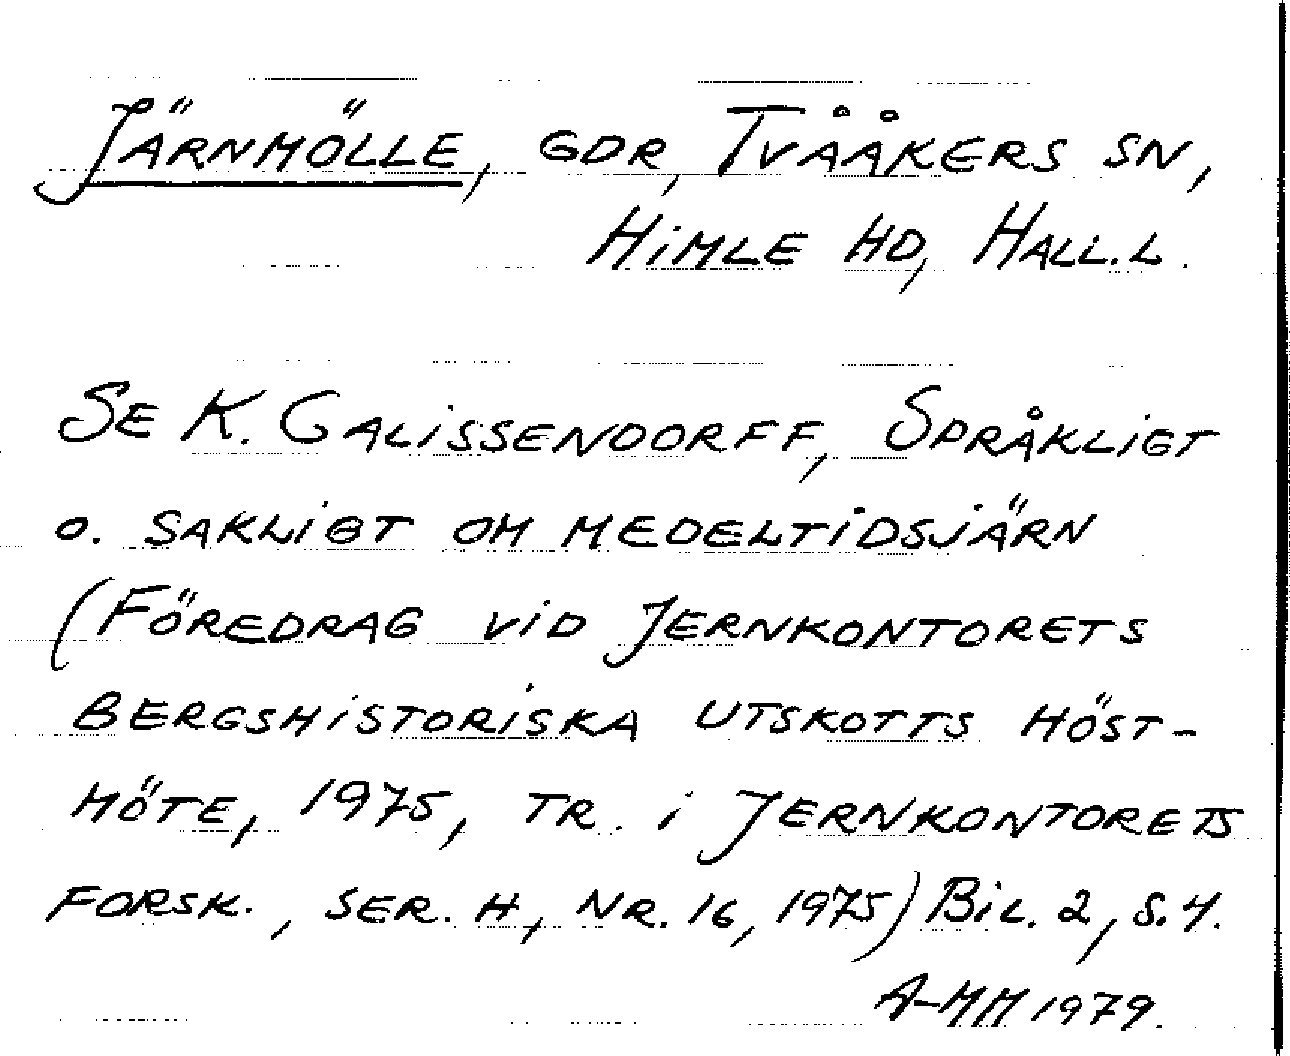 JÄRNMÖLLE, GDR, TVÅÅKERS SN,
HIMLE HD, HALL.L.
SE K. CALISSENDORFF, SPRÅKLIGT
O. SAKLIGT OM MEDELTIDSJÄRN
(FÖREDRAG VID JERNKONTORETS
BERGSHISTORISKA UTSKOTTS HÖST-
MÖTE, 1975, TR. I JERNKONTORETS
FORSK., SER. H, NR. 16, 1975) BIL. 2, S. 4.
A-MM 1979.